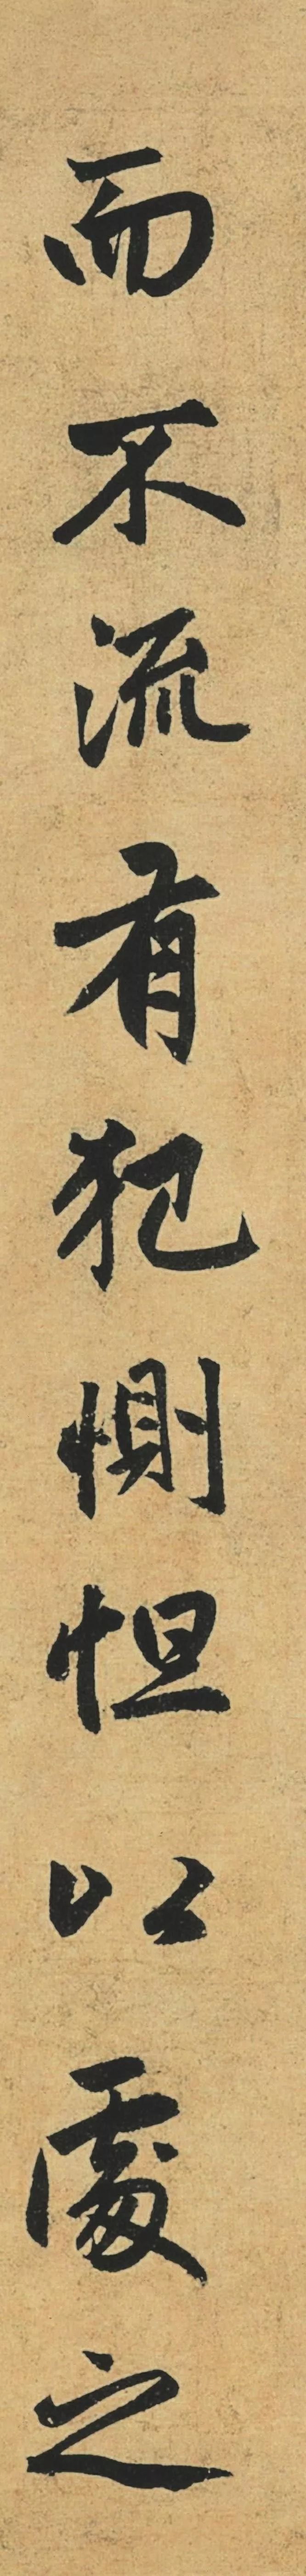 而不流有犯惻怛以處之